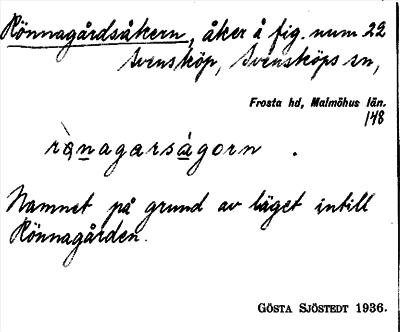 Rönnagårdsåkern, åker å fig. num 22
Svensköp, Svensköps sn,
Frosta hd, Malmöhus län.
148
Namnet på grund av läget intill
Rönnagården.
GÖSTA SJÖSTEDT 1936.